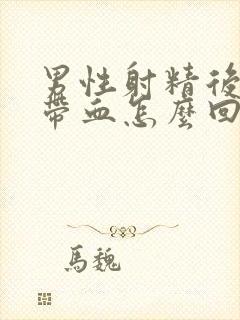 男性射精後
帶血怎麼回
馬魏